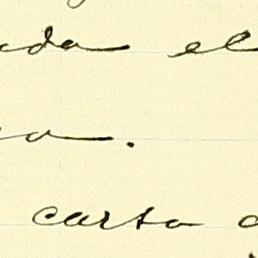 da el
a.
carta